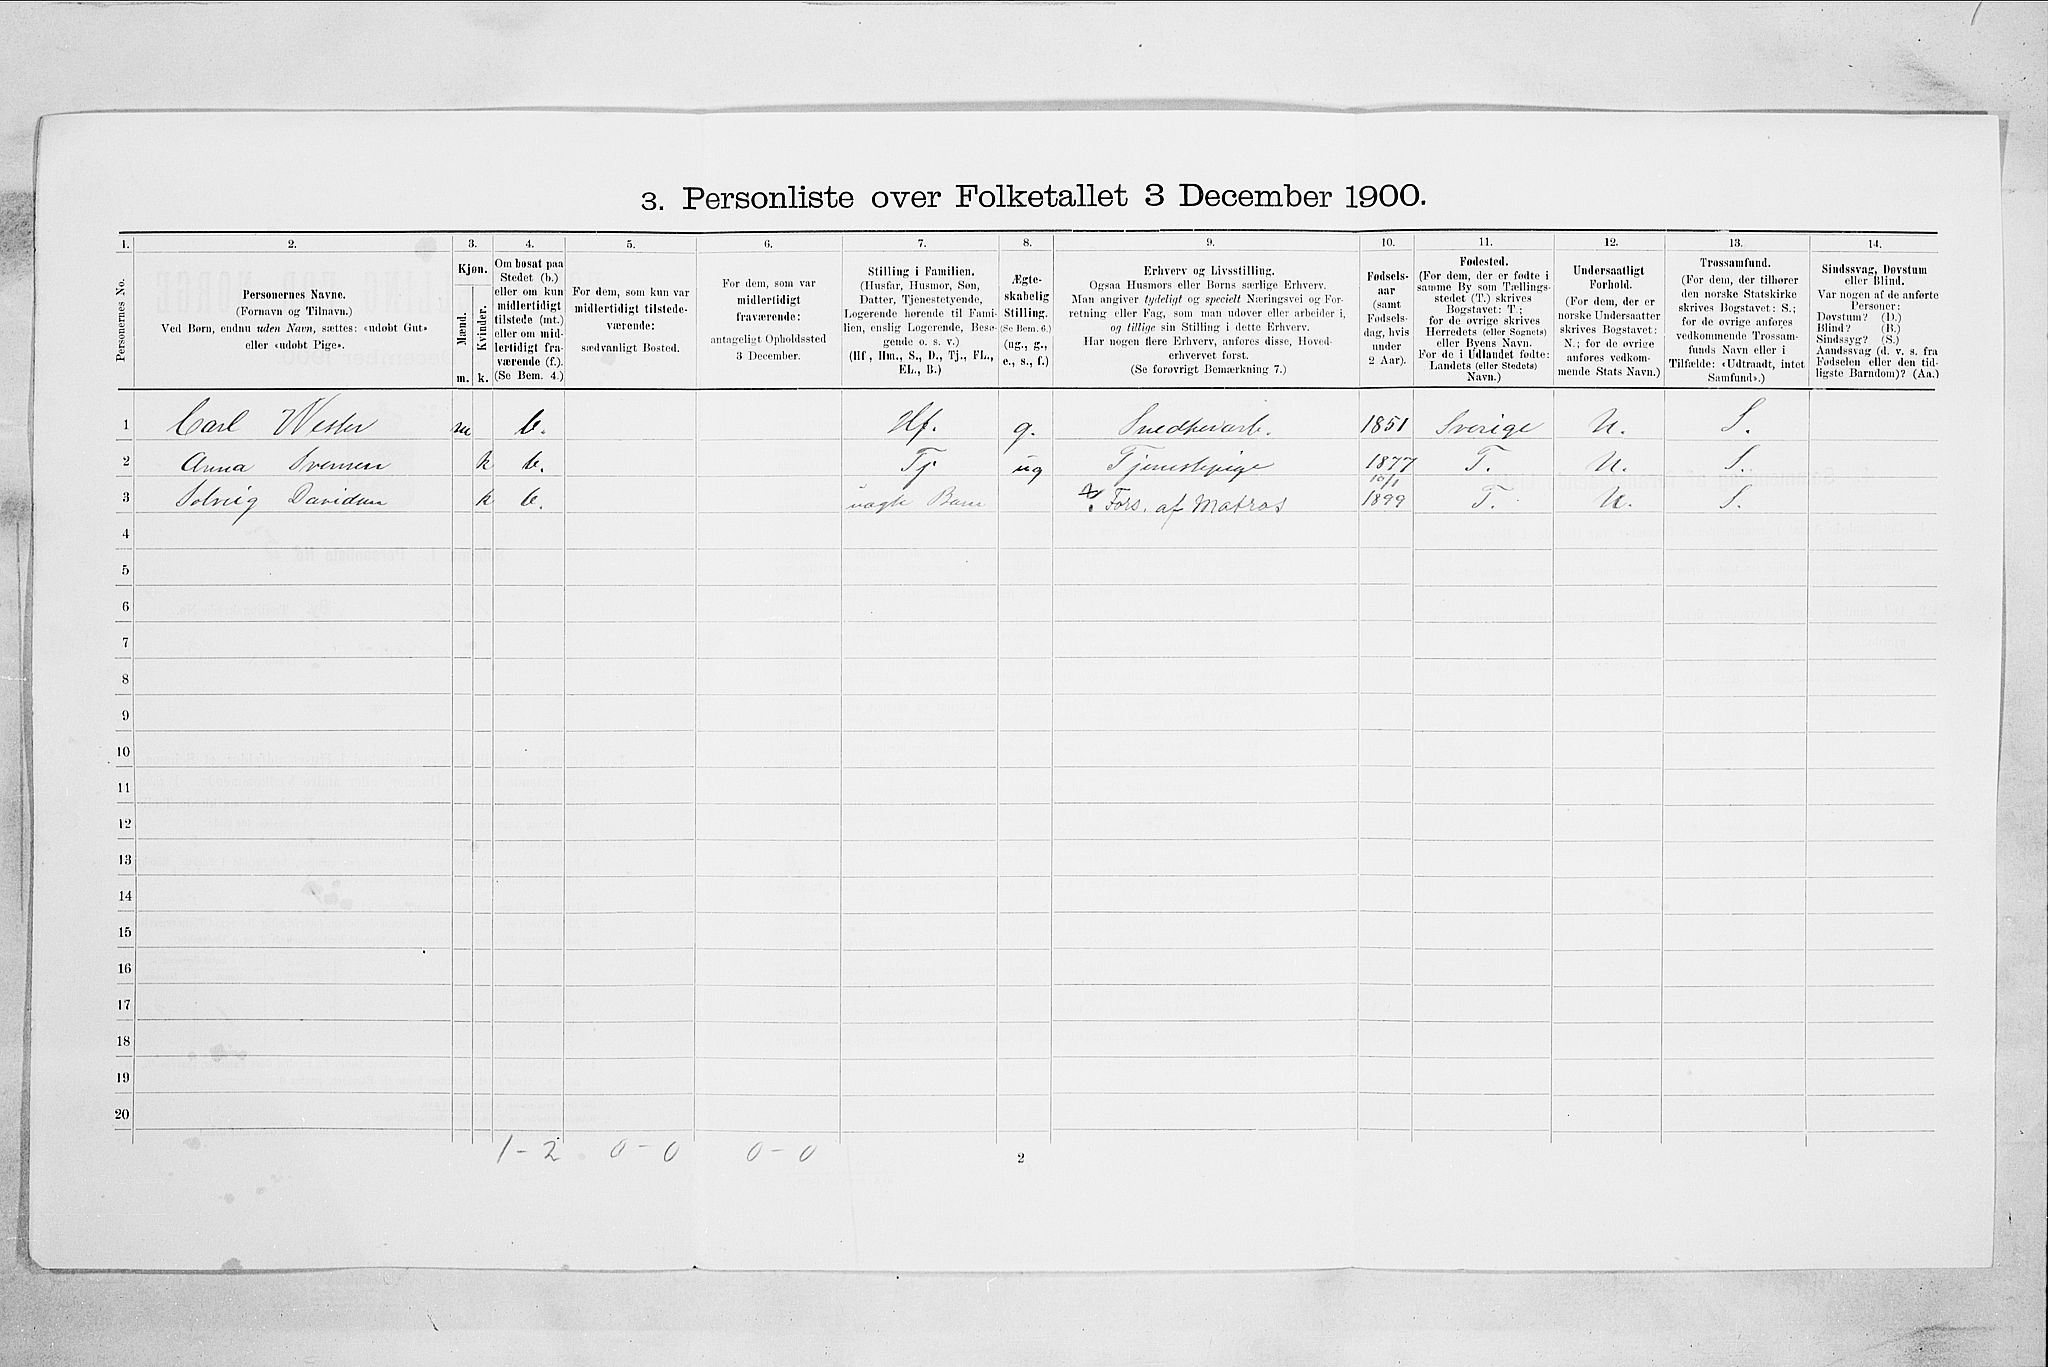 3. Personliste over Folketallet 3 December 1900.
1. 2. 3. 4. 5. 6. 7. 8. 9. 10. 11. 12. 13. 14.
Personernes No.
Personernes Navne.
(Fornavn og Tilnavn.)
Ved Børn, endnu uden Navn, sættes: «udøbt Gut»
eller «udøbt Pige».
Kjøn.
Mænd.
m.
Kvinder.
k.
Om bosat paa
Stedet (b.)
eller om kun
midlertidigt
tilstede (mt.)
eller om mid-
lertidigt fra-
værende (f.)
(Se Bem. 4.)
For dem, som kun var
midlertidigt tilstede-
værende:
sædvanligt Bosted.
For dem, som var
midlertidigt
fraværende:
antageligt Opholdssted
3 December.
Stilling i Familien.
(Husfar, Husmor, Søn,
Datter, Tjenestetyende,
Logerende hørende til Fami-
lien, enslig Logerende, Besø-
gende o. s. v.)
(Hf., Hm., S., D., Tj., FL.,
EL., B.)
Ægte-
skabelig
Stilling.
(Se Bem. 6.)
(ug., g.,
e., s., f.)
Erhverv og Livsstilling.
Ogsaa Husmors eller Børns særlige Erhverv.
Man angiver tydeligt og specielt Næringsvei og For-
retning eller Fag, som man udøver eller arbeider i,
og tillige sin Stilling i dette Erhverv.
Har nogen flere Erhverv, anføres disse, Hoved-
erhvervet først.
(Se forøvrigt Bemærkning 7.)
Fødsels-
aar
(samt
Fødsels-
dag, hvis
under
2 Aar).
Fødested.
(For dem, der er fødte i
samme By som Tællings-
stedet (T.) skrives
Bogstavet: T;
for de øvrige skrives
Herredets (eller Sognets)
eller Byens Navn.
For de i Udlandet fødte:
Landets (eller Stedets)
Navn.)
Undersaatligt
Forhold.
(For dem, der er
norske Undersaatter
skrives Bogstavet:
N.; for de øvrige
anføres vedkom-
mende Stats Navn.)
Trossamfund.
(For dem, der tilhører
den norske Statskirke
skrives Bogstavet: S.;
for de øvrige anføres
vedkommende Trossam-
funds Navn eller i
Tilfælde: «Udtraadt, intet
Samfund».)
Sindssvag, Døvstum
eller Blind.
Var nogen af de anførte
Personer:
Døvstum? (D.)
Blind? (B.)
Sindssyg? (S.)
Aandssvag (d. v. s. fra
Fødselen eller den tid-
ligste Barndom)? (Aa.)
1 Carl Wester m b. Hf. g. Snedkerarb. 1851 Sverige N. S.
2 Anna Svensen k b. Tj ug Tjenestepige 1877 T. N. S.
3 Solveig Davidsen k b. Barn Fors. af Matros 1899 T. N. S.
4
5
6
7
8
9
10
11
12
13
14
15
16
17
18
19
20
1-2 0-0 0-0
2